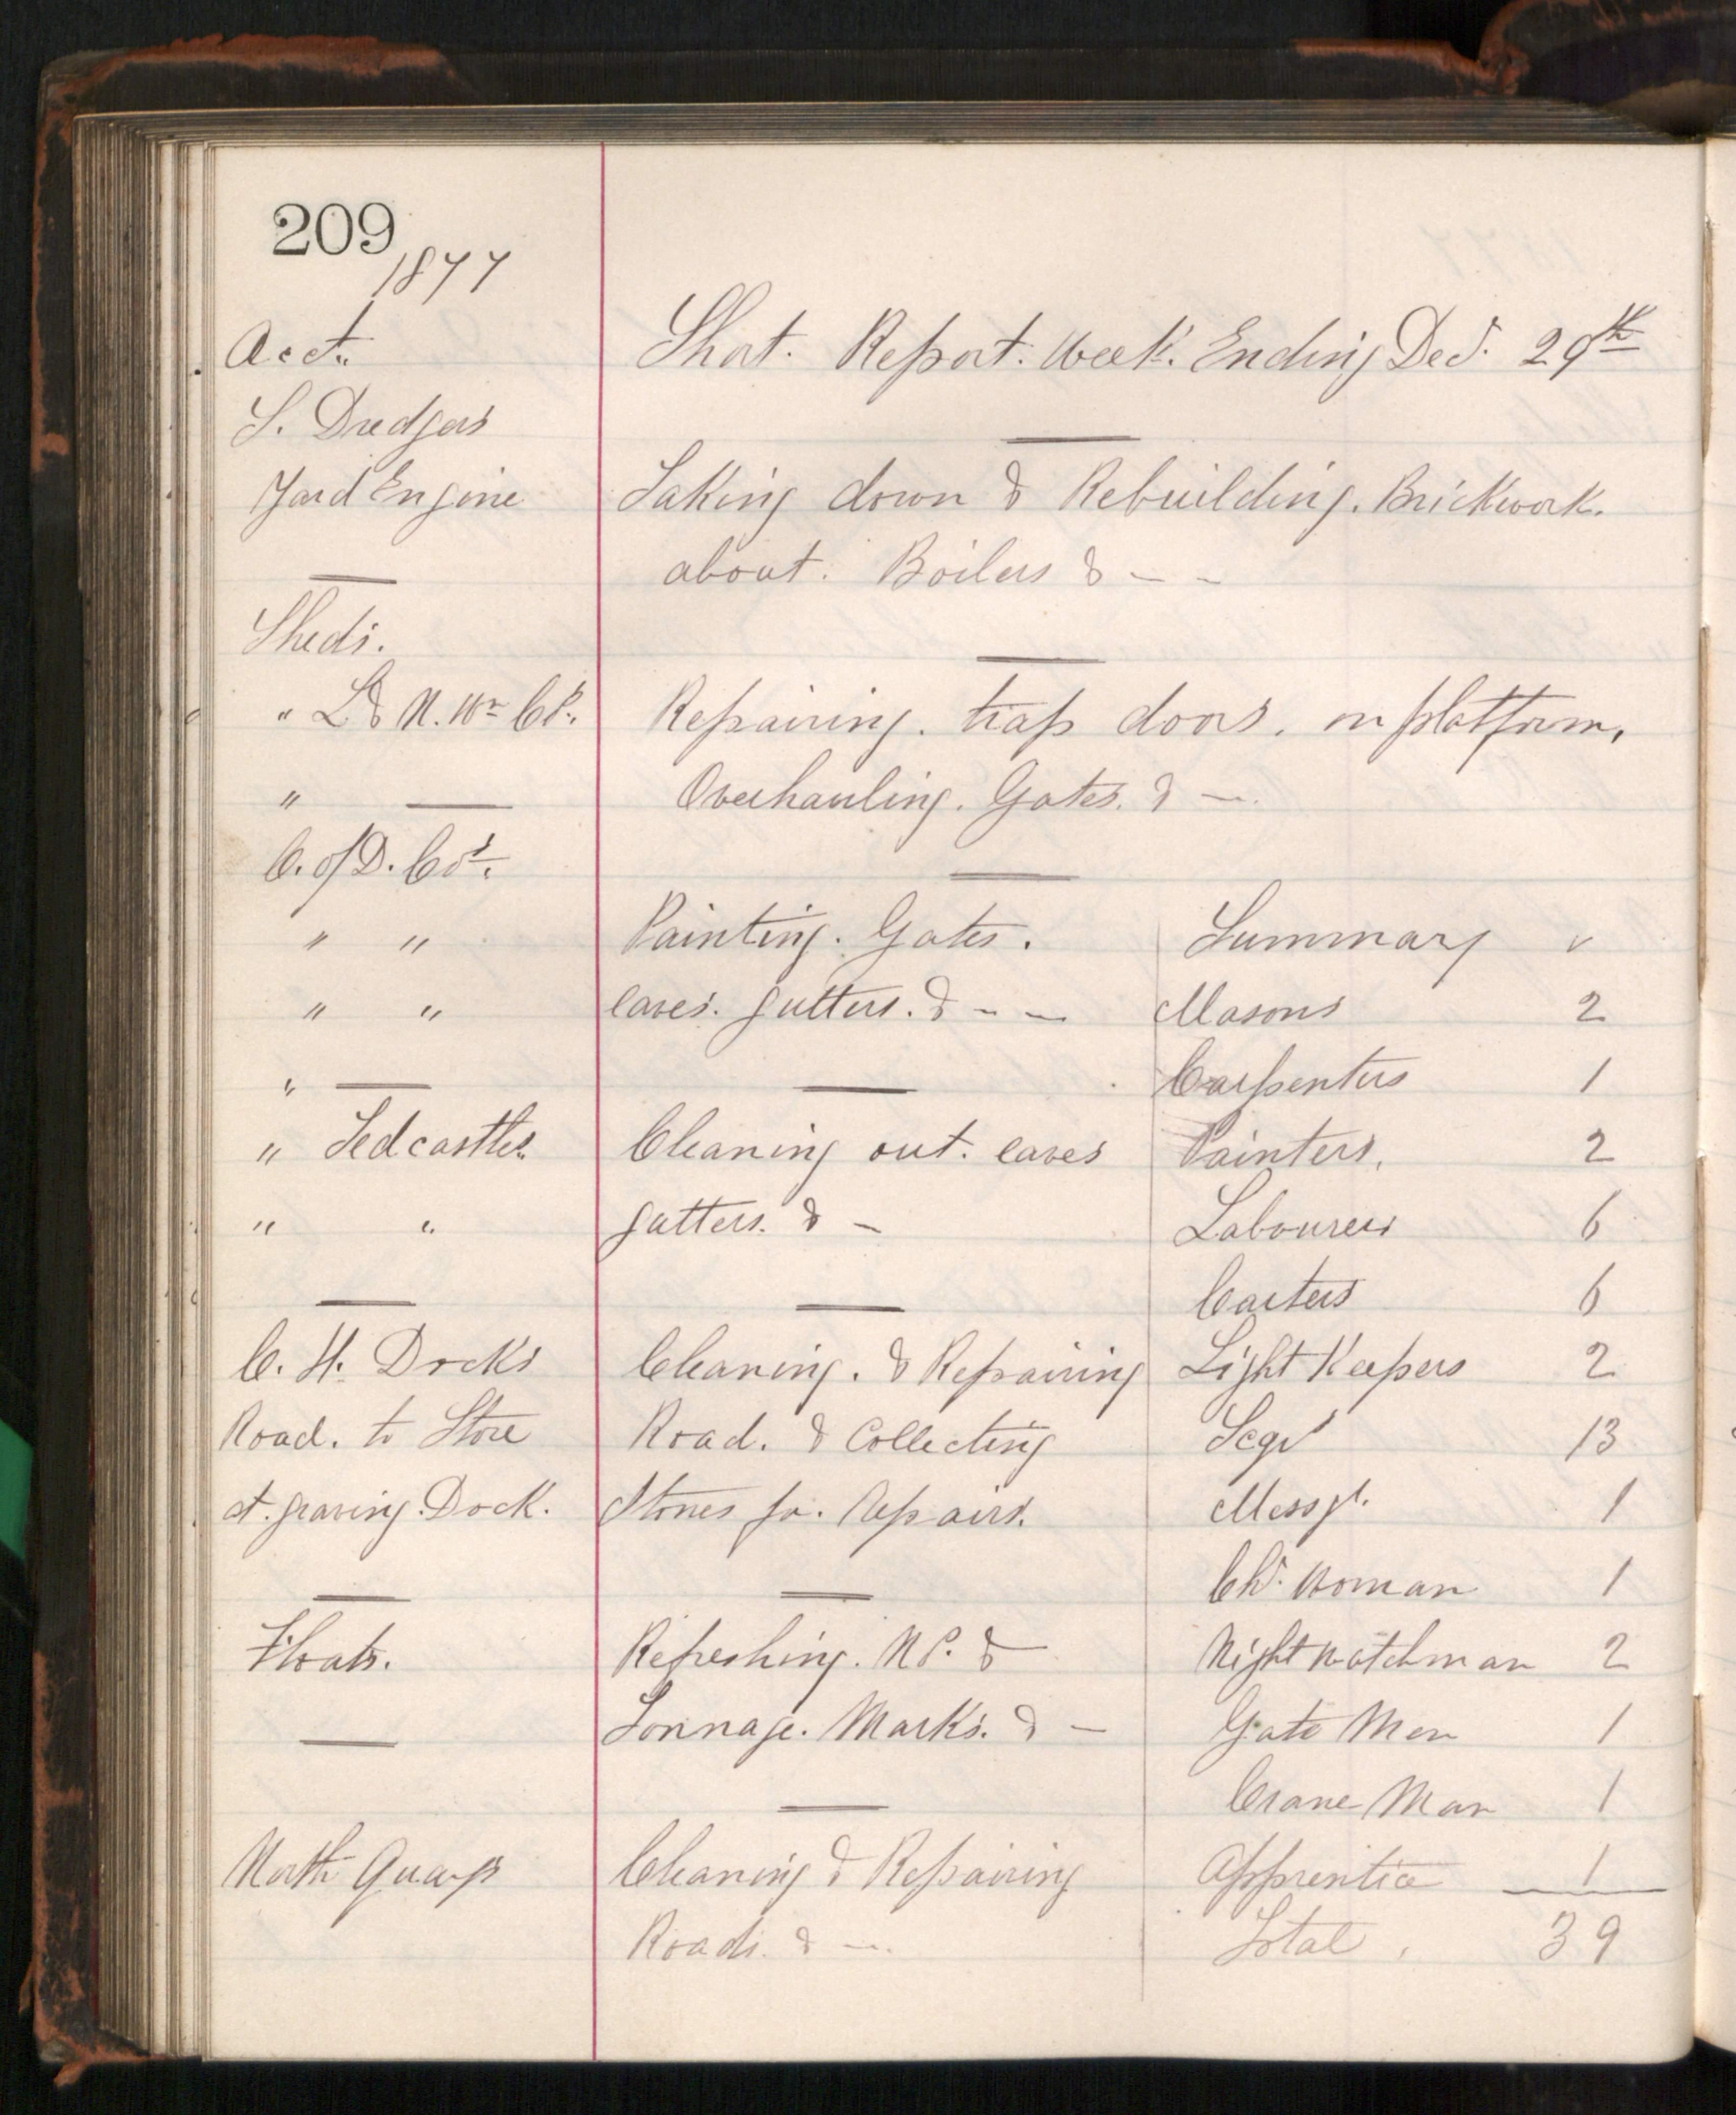 209
1877
Acct. Short. Report. Week. Ending Decr. 29th
S. Dredgers
Yard Engine Taking down & Rebuilding. Brickwork.
about. Boilers & - -
Sheds.
" L & N. Wn Co. Repairing. trap doors. on platform.
" — Overhauling. Gates. & -
C. of D. Cot.
" " Painting. Gates. Summary
" " eaves. gutters. & - - Masons 2
" — Carpenters 1
" Tedcastles Cleaning out. eaves Painters. 2
" " gutters. & - Labourers 6
Carters 6
C. H. Docks Cleaning. & Repairing Light Keepers 2
Road. to Store Road. & Collecting Segt 13
at. graving. Dock. Stones for. Repairs. Messgr. 1
Chr. Woman 1
Floats. Refreshing. NP. & Night watchman 2
Tonnage. Marks. & - Gate Men 1
Crane Man 1
North Quays Cleaning & Repairing Apprentice 1
Roads. & -. Total. 39